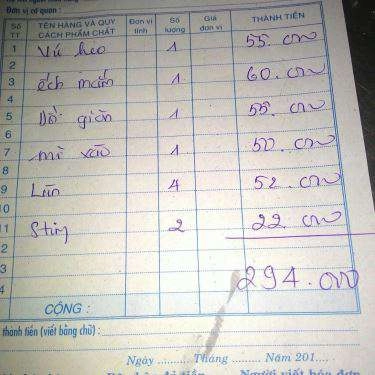 Đơn vị cơ quan :
Số TT TÊN HÀNG VÀ QUY CÁCH PHẨM CHẤT Đơn vị tính Số lượng Giá đơn vị THÀNH TIỀN
1 Vú heo 1 55.000
2
3 ếch mắm 1 60.000
4
5 Dồi giòn 1 55.000
6
7 mì xào 1 50.000
8
9 Lăn 4 52.000
10
11 Sting 2 22.000
2
3 294.000
4
CỘNG :
thành tiền (viết bằng chữ) :
Ngày ......... Tháng ......... Năm 201....
Người viết hóa đơn